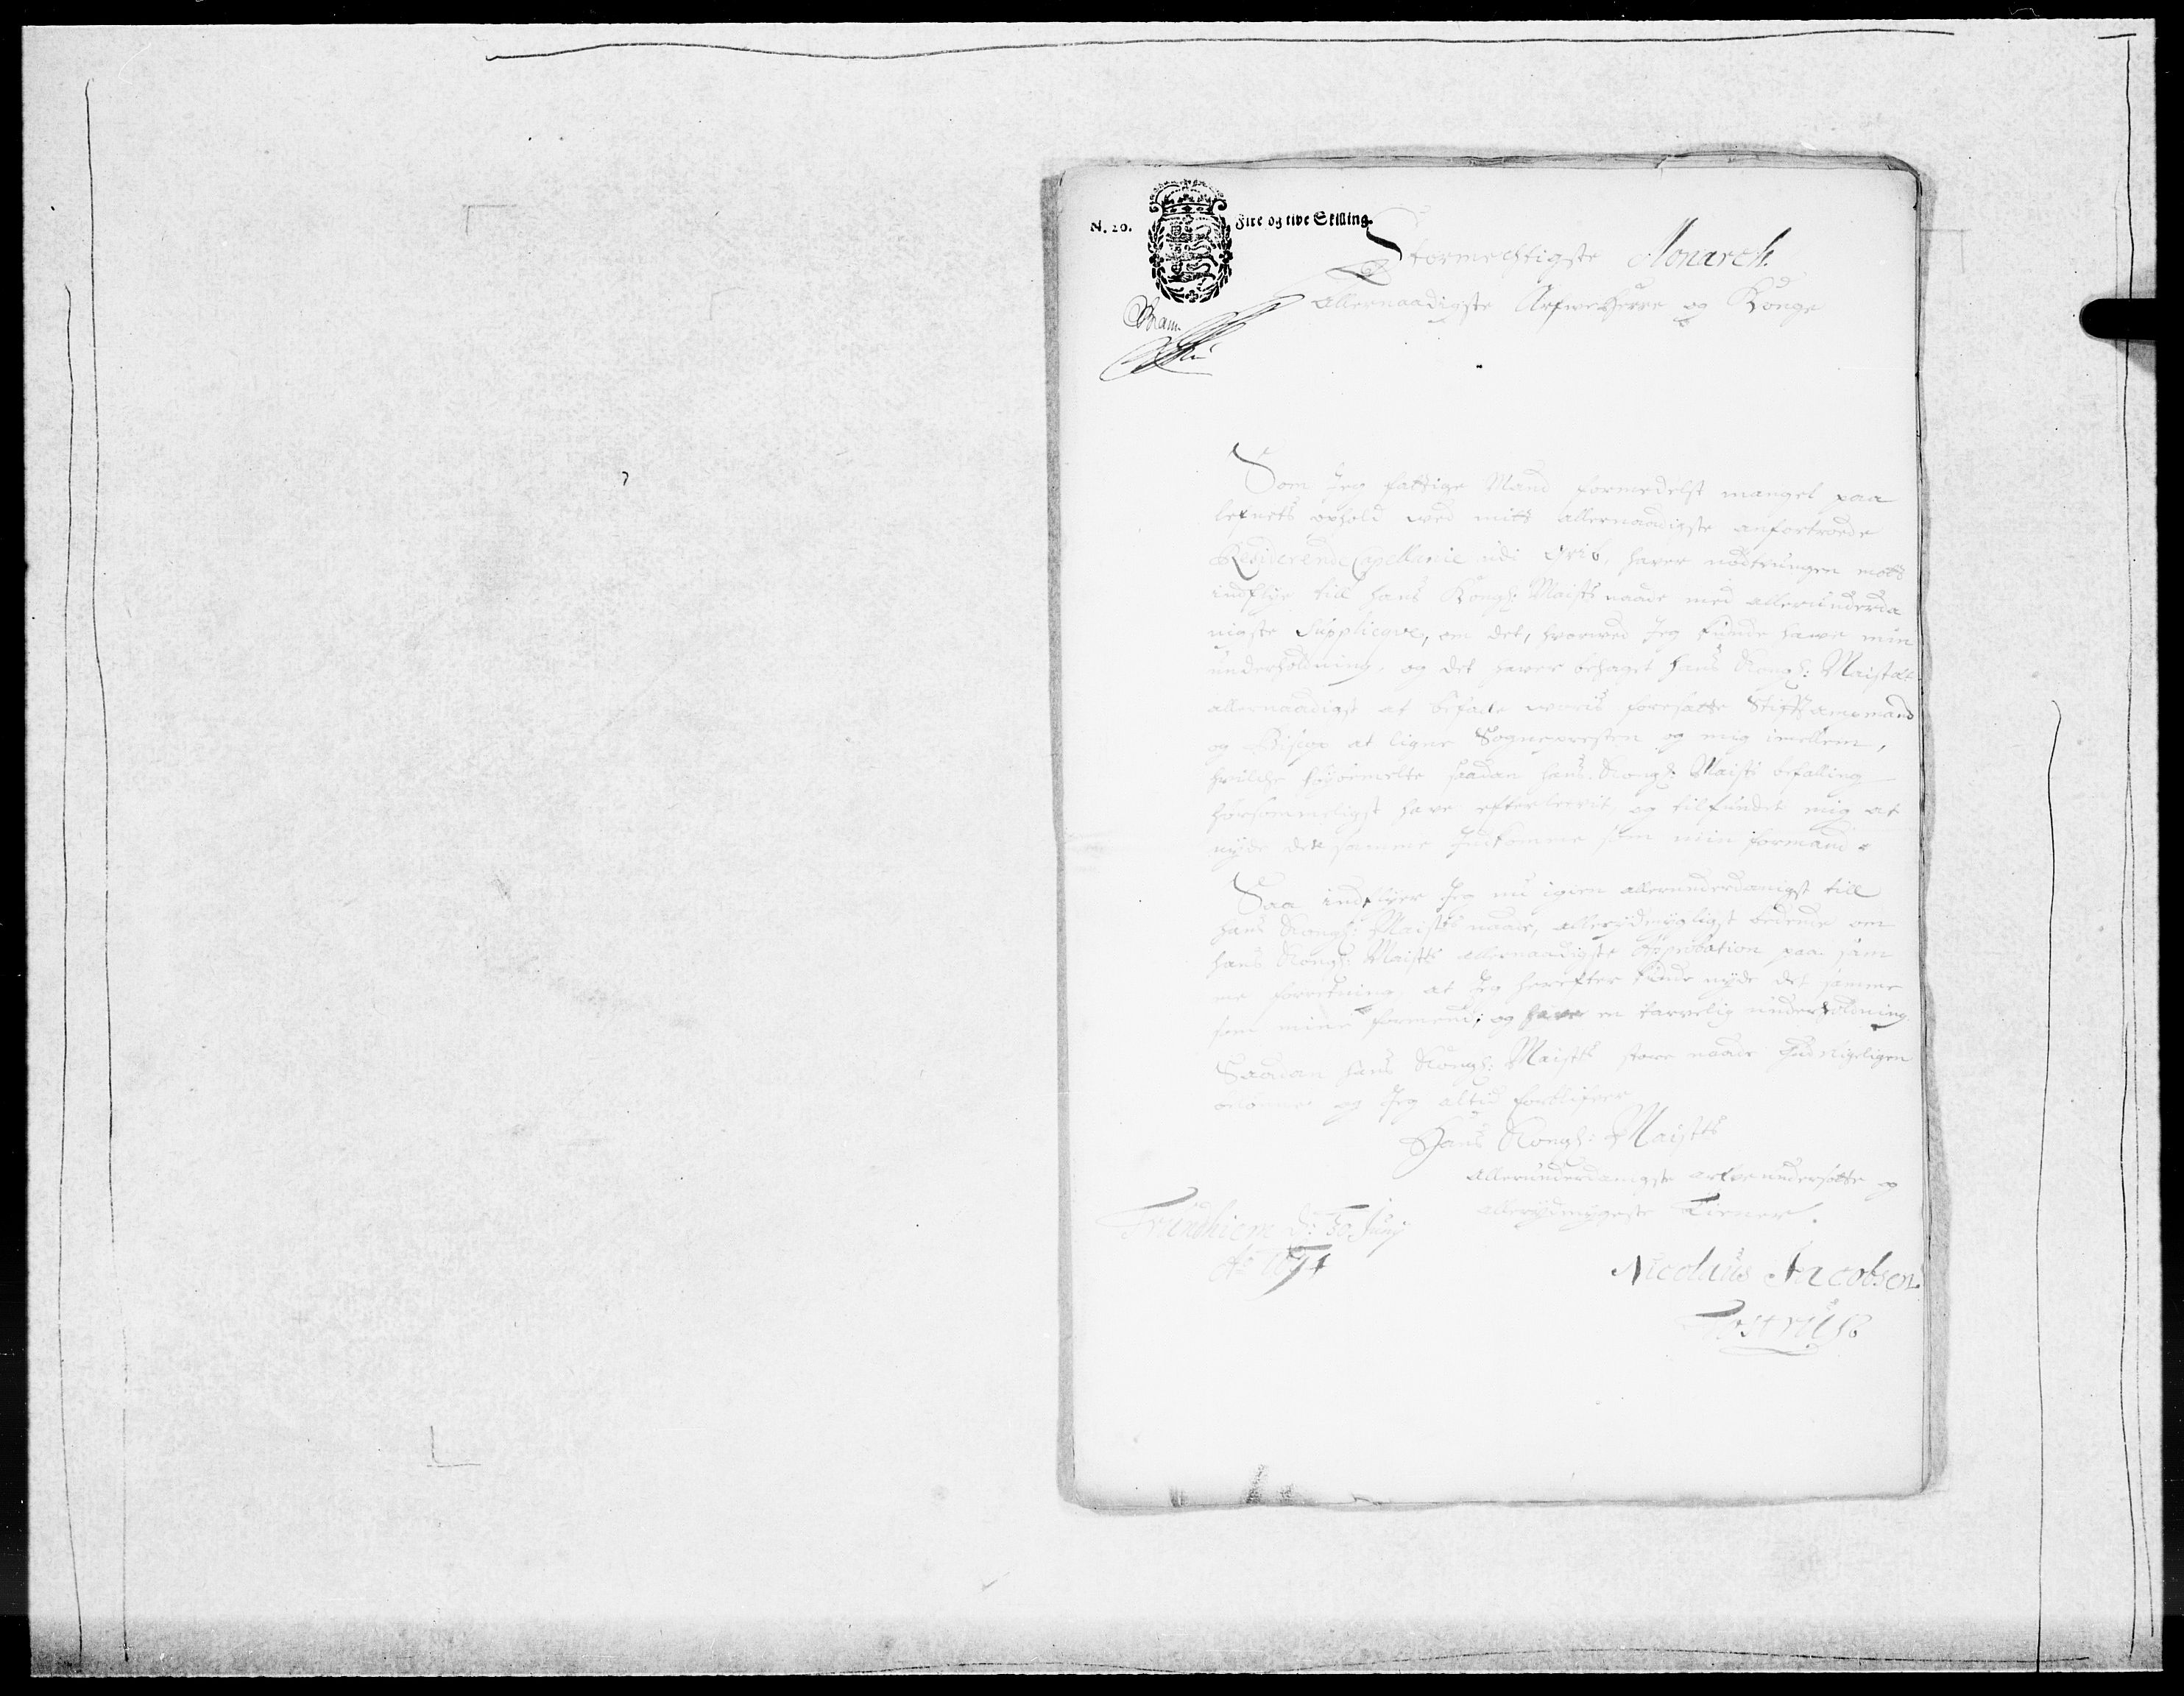 N. 20. Fire og tive Skilling.
Stormechtigste Monarch.
Allernaadigste Arfwe Herre og Konge
Som Jeg fattige Mand formedelst mangel paa
lefnets ophold ved mitt allernaadigste anfortroede
Residerende Capellanie udi har nødtrungen
indflye till hans Kongl: Maists naade med allerunderda
nigste Supplicqve, om det, hvorved Jeg kunde have min
underholdning, og det haver behaget hans Kongl: Maistæt
allernaadigst at befale voris foresatte Stiftamtmand
og Biscop at ligne Sognepresten og mig imellem,
hvilche saadan hans Kongl: Maists befalling
hørsommeligst have efterlevit og tilfundet mig at
nyde det samme Indkomme som min formand
Saa indflyer Jeg nu igien allerunderdanigst till
hans Kongl: Maists naade, allerydmygligst bedende om
hans Kongl: Maists allernaadigste Approbation paa sam
me forretning, at Jeg herefter kunde nyde det samme
som mine formend; og have en tarvelig underholdning
Saadan hans Kongl: Maists store naade Gud rigeligen
belønner og Jeg altid forblifver
Hans Kongl: Maists
Allerunderdanigste arfve undersotte og
allerydmygeste Tiener.
Trundhiem d: 30 Junij
Ao 1694
Nicolaus Jacobsen
Tostrup